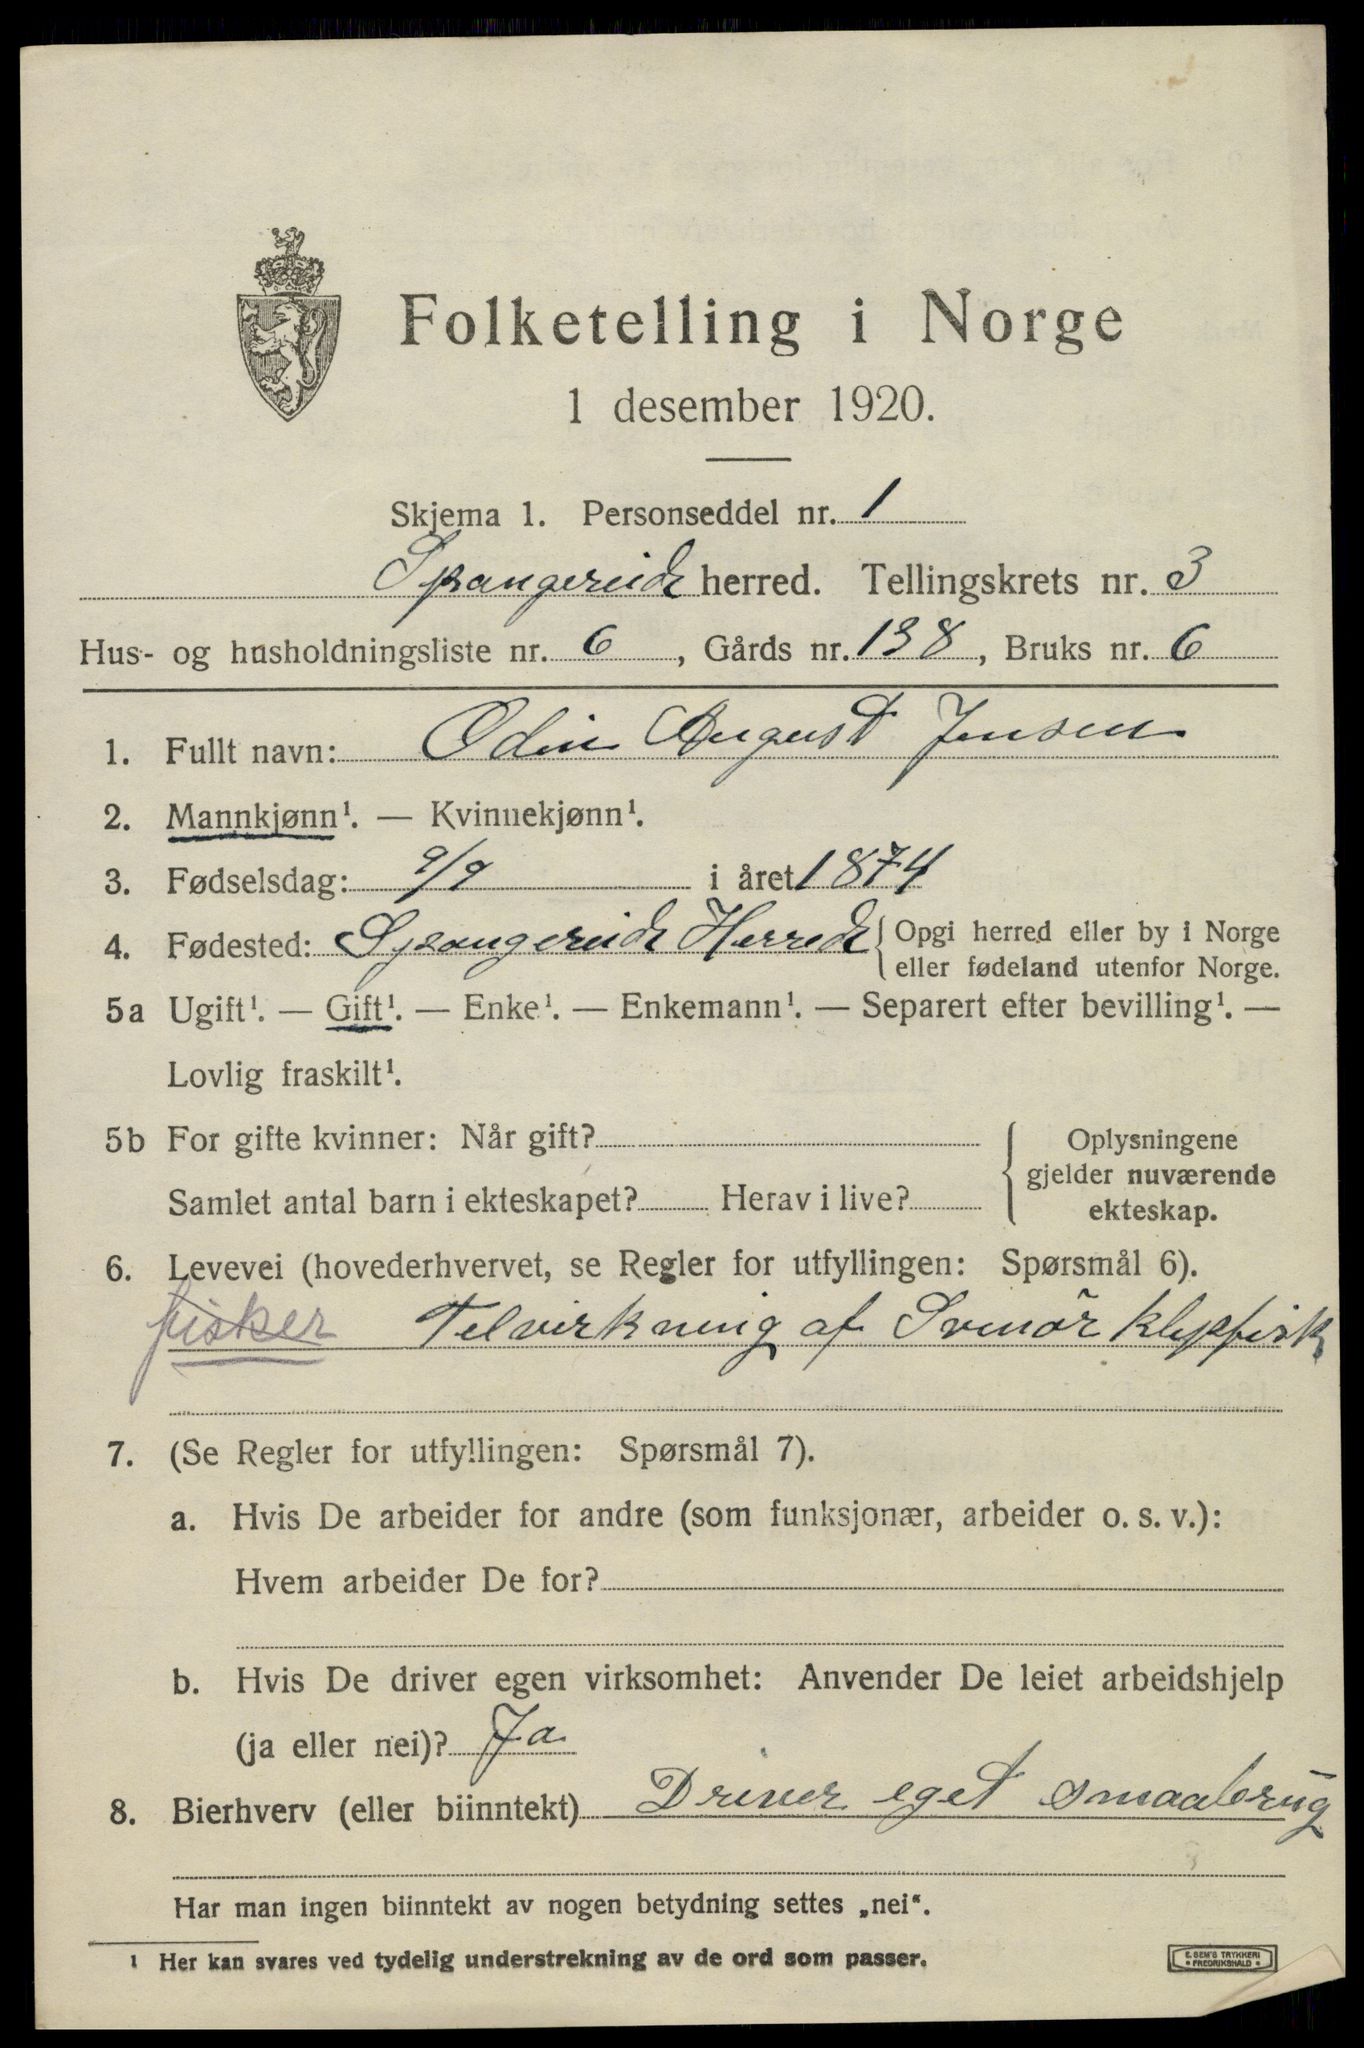 Folketelling i Norge
1 desember 1920.
Skjema 1. Personseddel nr. 1
Spangereid herred. Tellingskrets nr. 3
Hus- og husholdningsliste nr. 6, Gårds nr. 138, Bruks nr. 6
1. Fullt navn: Odin August Jensen
2. Mannkjønn¹. — Kvinnekjønn¹.
3. Fødselsdag: 9/9 i året 1874
4. Fødested: Spangereid Herred { Opgi herred eller by i Norge
eller fødeland utenfor Norge.
5a Ugift¹. — Gift¹. — Enke¹. — Enkemann¹. — Separert efter bevilling¹. —
Lovlig fraskilt¹.
5b For gifte kvinner: Når gift? { Oplysningene
gjelder nuværende
Samlet antal barn i ekteskapet? Herav i live? ekteskap.
6. Levevei (hovederhvervet, se Regler for utfyllingen: Spørsmål 6).
fisker Telvirkning af Svinör klipfisk
7. (Se Regler for utfyllingen: Spørsmål 7).
a. Hvis De arbeider for andre (som funksjonær, arbeider o. s. v.):
Hvem arbeider De for?
b. Hvis De driver egen virksomhet: Anvender De leiet arbeidshjelp
(ja eller nei)? Ja
8. Bierhverv (eller biinntekt) Driver eget smaabrug
Har man ingen biinntekt av nogen betydning settes „nei“.
¹ Her kan svares ved tydelig understrekning av de ord som passer.
E. SEM'S TRYKKERI
• FREDRIKSHALD •